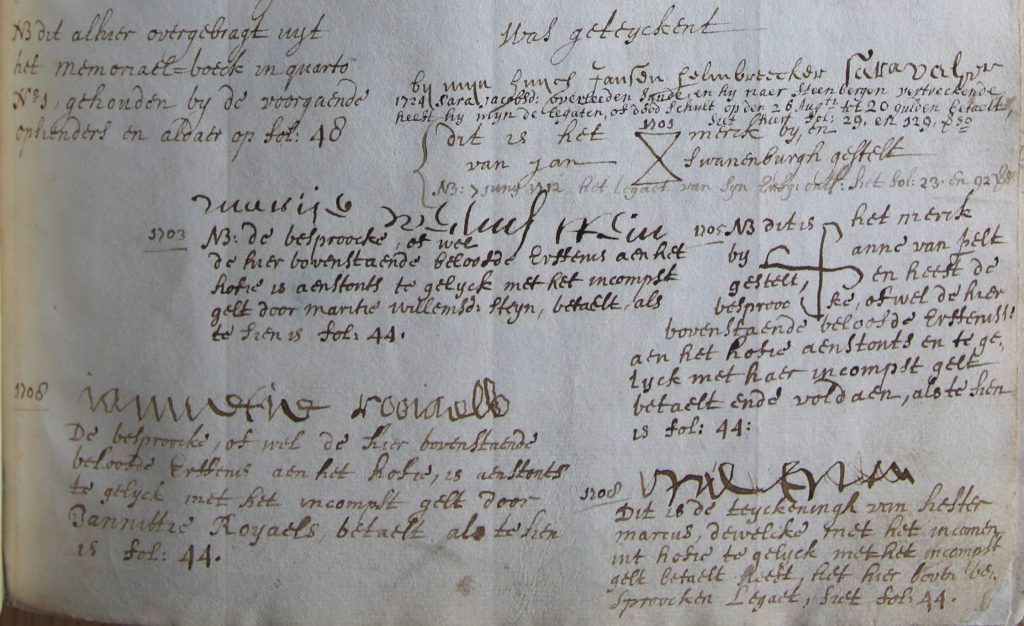 NB dit alhier overgebragt uyt
het memoriael=boeck in quarto
N:o 1, gehouden by de voorgaende
ophenders en aldaer op fol: 48
Was geteyckent
by myn Jansen helmbreecker Sara
1724 Sara Jacobsd: overleeden en hy naer Steenbergen vertreckende
heeft hy myn de legaten, of dood schult op den 26 Augti tot 20 gulden betaelt,
siet fol: 29, en 129,
dit is het 1701 merck by, en
van jan Swanenburgh gestelt
NB: 7 Juny 1712 het legaet van syn ontf: siet fol: 23. en 92
marijo
1703 NB: de besproocke, of wel
de hier bovenstaende beloofde Erffenis aen het
hofie is aenstonts te gelyck met het incompst
gelt door maritie willemsd: Steyn, betaelt, als
te sien is fol: 44.
1705 NB dit is het merck
by anne van pelt
gestelt, en heeft de
besproocke, of wel de hier
bovenstaende beloofde Erffeniss:
aen het hofie aenstonts en te ge,
lyck met haer incompst gelt
betaelt ende voldaen, als te sien
is fol: 44:
1708 iannetie rooiaels
De besproocke, of wel de hier bovenstaende
beloofde Erffenis aen het hofie, is aenstonts
te gelyck met het incompst gelt door
Jannittie Royaels, betaelt als te sien
is fol: 44.
1708
Dit is de teyckeningh van hester
marcus, dewelcke met het incomen
int hofie te gelyck met het incompst
gelt betaelt heeft, het hier boven be,
sproocken Legaet, siet fol: 44.